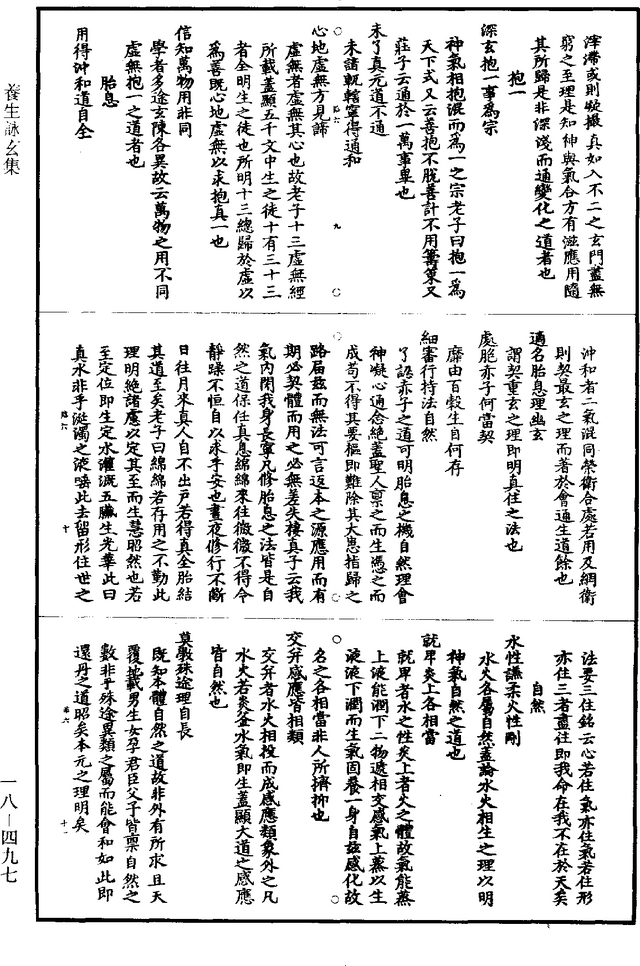 滓滯或則凝撮真如入不二之玄門蓋無
窮之至理是知神與氣合方有滋應用隨
其所歸是非深淺而通變化之道者也
抱一
深玄抱一事爲宗
神氣相抱混而爲一之宗老子曰抱一爲
天下式又云善抱不脫善計不用籌策又
莊子云通於一萬事畢也
未了真元道不通
未諸軏轄寧得通和
心地虛無方見諦
虛無者虛無其心也故老子十三虛無經
所載蓋顯五千文中生之徒十有三十三
者全明生之徒也所明十三總歸於虛以
爲善既心地虛無以求抱真一也
信知萬物用非同
學者多途玄陳各異故云萬物之用不同
虛無抱一之道者也
胎息
用得沖和道自全
沖和者二氣混同榮衛合處若用及綢衛
則契最玄之理而著於會通生道餘也
適名胎息理幽玄
謂契重玄之理即明真住之法也
處胞赤子何當契
靡由百穀生自何存
細審行持法自然
了認赤子之道可明胎息之機自然理會
神凝心通念絕蓋聖人禀之而生憑之而
成苟不得其要樞即難除其大患指歸之
路屆茲而無法可言返本之源應用而有
期必契體而用之必無差失棲真子云我
氣內閉我身長寧凡修胎息之法皆是自
然之道保任真息綿綿來往微微不得令
靜躁不恒自以求乎安也晝夜修行不斷
日往月來真人自不出戶若得真全胎結
其道至矣老子曰綿綿若存用之不勤此
理明絕諸慮以定其至而生慧昭然也若
至定位即生定水灌溉五臟生光華此曰
真水非乎涎濁之液嚥此去留形住世之
法要三住銘云心若住氣亦住氣若住形
亦住三者盡住即我命在我不在於天矣
自然
水性謙柔火性剛
水火各屬自然蓋論水火相生之理以明
神氣自然之道也
就卑炎上各相當
就卑者水之性炎上者火之體故氣能蒸
上液能潤下二物遞相交感氣上蒸以生
液液下潤而生氣固養一身自茲感化故
名之各相當非人所擠抑也
交幷感應皆相類
交幷者水火相投而成感應類象外之凡
水火若炎釜水氣即生蓋顯大道之感應
皆自然也
莫斆殊途理自長
既知本體自然之道故非外有所求且天
覆地載男生女孕君臣父子皆禀自然之
數非乎殊途異類之屬而能會和如此即
還丹之道昭矣本元之理明矣
養生詠玄集
一八－四九七